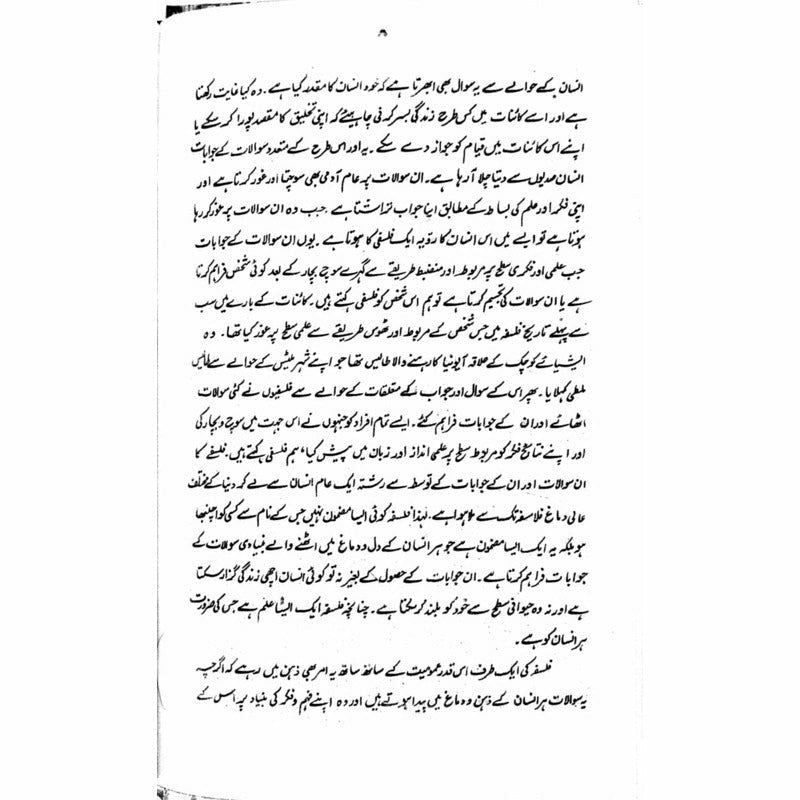 ۸
انسان کے حوالے سے یہ سوال بھی ابھرتا ہے کہ خود انسان کا مقدر کیا ہے۔ وہ کیا غایت رکھتا
ہے اور اسے کائنات میں کس طرح زندگی بسر کرنی چاہیئے کہ اپنی تخلیق کا مقصد پورا کر سکے یا
اپنے اس کائنات میں قیام کو جواز دے سکے۔ یہ اور اس طرح کے متعدد سوالات کے جوابات
انسان صدیوں سے دیتا چلا آ رہا ہے۔ ان سوالات پر عام آدمی بھی سوچتا اور غور کرتا ہے اور
اپنی فکر اور علم کی بساط کے مطابق اپنا جواب تراشتا ہے۔ جب وہ ان سوالات پر غور کر رہا
ہوتا ہے تو ایسے میں اس انسان کا رویہ ایک فلسفی کا ہوتا ہے۔ یوں ان سوالات کے جوابات
جب علمی اور فکری سطح پر مربوط اور منضبط طریقے سے گہرے سوچ بچار کے بعد کوئی شخص فراہم کرتا
ہے یا ان سوالات کی تجسیم کرتا ہے تو ہم اس شخص کو فلسفی کہتے ہیں۔ کائنات کے بارے میں سب
سے پہلے تاریخ فلسفہ میں جس شخص کے مربوط اور ٹھوس طریقے سے علمی سطح پر غور کیا تھا۔ وہ
ایشیائے کوچک کے علاقہ آیونیا کا رہنے والا طالیس تھا جو اپنے شہر ملیٹس کے حوالے سے طالیس
ملطی کہلایا۔ پھر اس کے سوال اور جواب کے متعلقات کے حوالے سے فلسفیوں نے کئی سوالات
اٹھائے اور ان کے جوابات فراہم کئے۔ ایسے تمام افراد کو جنہوں نے اس جہت میں سوچ و بچار کی
اور اپنے نتائج فکر کو مربوط سطح پر علمی انداز اور زبان میں پیش کیا، ہم فلسفی کہتے ہیں۔ فلسفے کا
ان سوالات اور ان کے جوابات کے توسط سے رشتہ ایک عام انسان سے لے کر دنیا کے مختلف
عالی دماغ فلاسفہ تک سے ملا ہوا ہے۔ لہذا فلسفہ کوئی ایسا مضمون نہیں جس کے نام سے کسی کو اچنبھا
ہو بلکہ یہ ایک ایسا مضمون ہے جو ہر انسان کے دل و دماغ میں اٹھنے والے بنیادی سوالات کے
جوابات فراہم کرتا ہے۔ ان جوابات کے حصول کے بغیر نہ تو کوئی انسان اچھی زندگی گذار سکتا
ہے اور نہ وہ حیوانی سطح سے خود کو بلند کر سکتا ہے۔ چنانچہ فلسفہ ایک ایسا علم ہے جس کی ضرورت
ہر انسان کو ہے۔
فلسفہ کی ایک طرف اس قدر عمومیت کے ساتھ ساتھ یہ امر بھی ذہن میں رہے کہ اگرچہ
یہ سوالات ہر انسان کے ذہن و دماغ میں پیدا ہوتے ہیں اور وہ اپنے فہم و فکر کی بنیاد پر اس کے